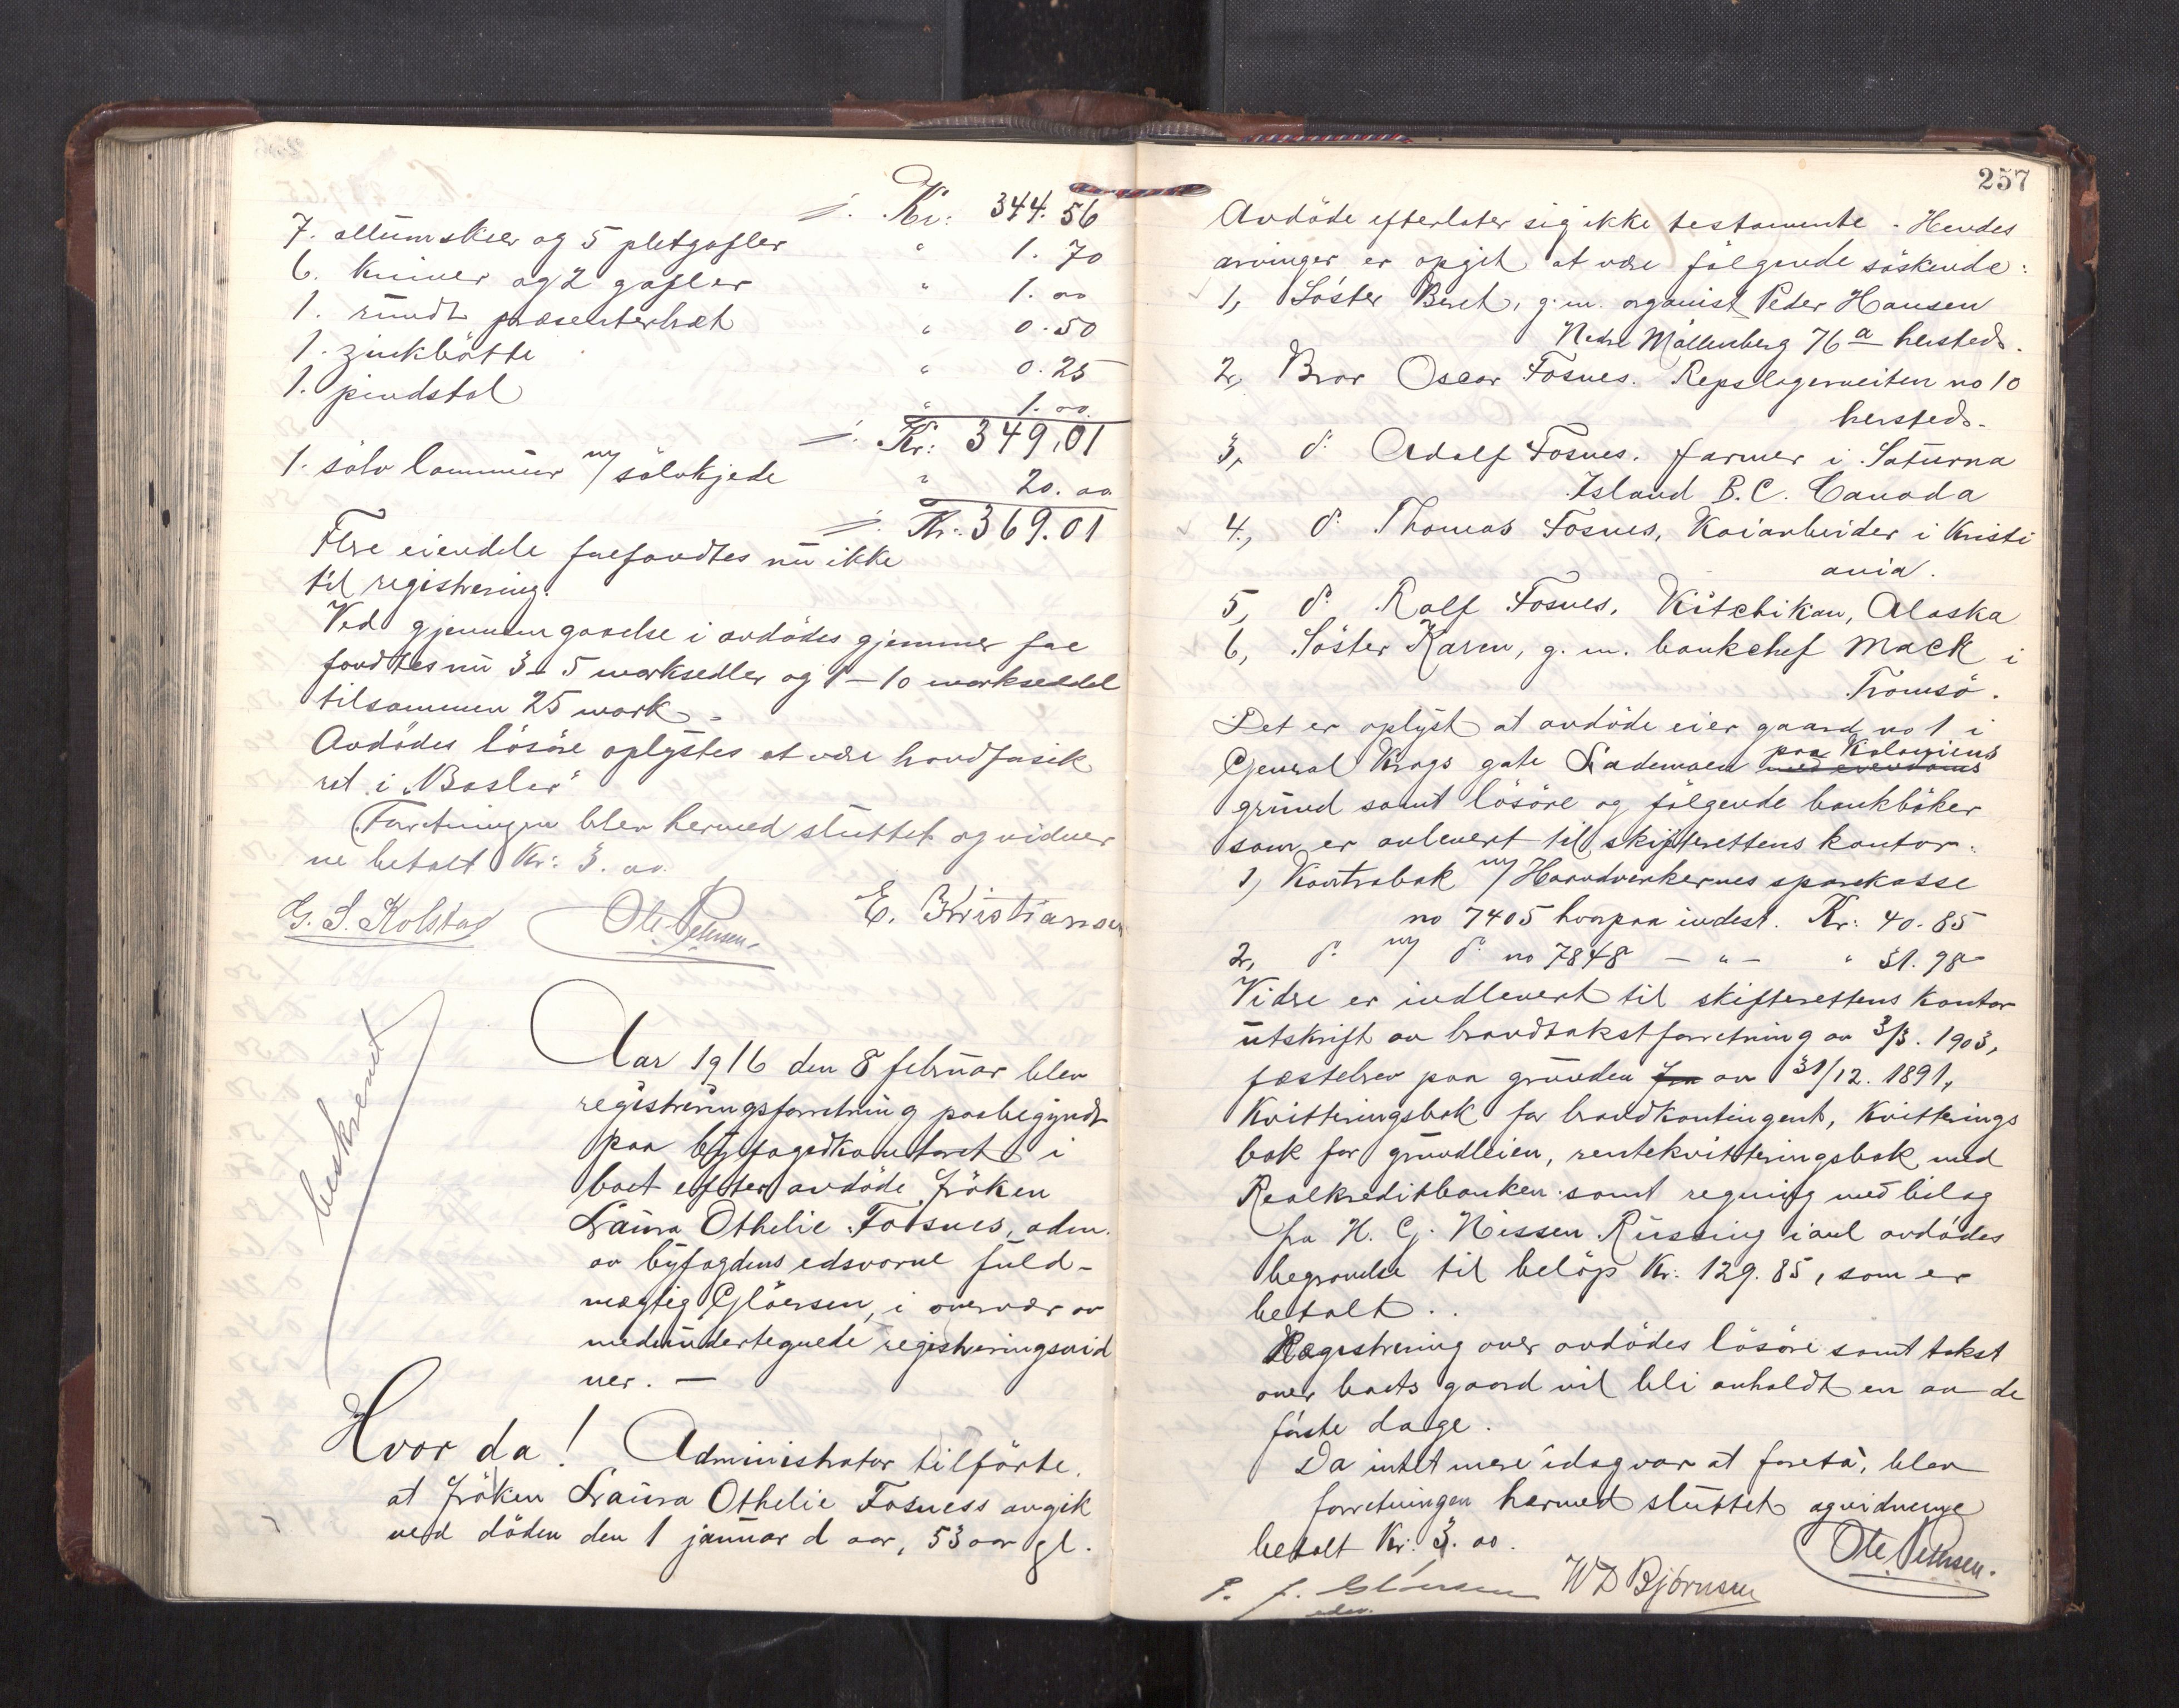 ./. Kr: 344.56
7. allumskeer og 5 pletgafler " 1.70
6. kniver og 2 gafler " 1.00
1. rundt præsenterbræt " 0.50
1. zinkbötte " 0.25
1. pindstol " 1.00
./. Kr: 349.01
1. sölv lommeur m/ sölvkjede " 20.00
./. Kr: 369.01
Flere eiendele forefandtes nu ikke
til registrering.
Ved gjennemgaaelse i avdödes gjemmer fore
fandtes nu 3 - 5 marksedler og 1 - 10 markseddel
tilsammen 25 mark.
Avdödes lösöre oplystes at være brandforsik
ret i "Basler"
Forretningen blev hermed sluttet og vidner
ne betalt Kr: 3.00
G. S. Kolstad Ole Petersen E. Kristiansen
beskrevet
Aar 1916 den 8 februar blev
registreringsforretning paabegyndt
paa byfogedkontoret i
boet efter avdöde fröken
Laura Othelie Fosnes, adm.
av byfogdens edsvorne fuld-
mægtig Glöersen, i overvær av
medundertegnede registreringsvid
ner. —
Hvor da! Administrator tilförte,
at fröken Laura Othelie Fosness avgik
ved döden den 1 januar d aar, 53 aar gl.
257
Avdöde efterlater sig ikke testamente. Hendes
arvinger er opgit at være fölgende söskende:
1, Söster Beret, g. m. organist Peder Hansen
Nedre Möllenberg 76 a hersteds.
2, Bror Oscar Fosnes. Repslagerveiten no 10
hersteds.
3, d: Adolf Fosnes. farmer i Saturna
Island B.C. Canada
4, d: Thomas Fosnes, Kaiarbeider i Kristi
ania.
5, d: Rolf Fosnes, Kitchikan, Alaska
6, Söster Karen, g. m. bankchef Mack i
Tromsö.
Det er oplyst at avdöde eier gaard no 1 i
General Krags gate Lademoen med eiendoms paa Koloniens
grund samt lösöre og fölgende bankböker
som er avlevert til skifterettens kontor:
1, Kontrabok m/ Haandverkernes sparekasse
no 7405 hvorpaa indest. Kr: 40.85
2, d: m/ d: no 7848 - " - " 31.98
Videre er indlevert til skifterettens kontor
utskrift av brandtakstforretning av 3/3. 1903,
fæstebrev paa grunden fra av 31/12. 1891,
Kvitteringsbok for brandkontingent, Kvitterings
bok for grundleien, rentekvitteringsbok med
Realkreditbanken samt regning med bilag
fra H. G. Nissen Russing i anl avdödes
begravelse til belöp Kr: 129.85, som er
betalt.
Registrering over avdödes lösöre samt takst
over boets gaard vil bli avholdt en av de
förste dage.
Da intet mere idag var at foreta, blev
forretningen hermed sluttet og vidnerne
betalt Kr: 3.00.
Ole Petersen.
P. J. Glöersen W D Björnsen
edsv.